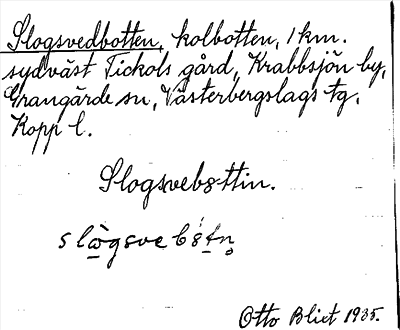 Slogsvedbotten, kolbotten, 1 km.
sydväst Tickols gård, Krabbsjön by,
Grangärde sn, Västerbergslags tg.
Kopp l.
Slogsvebȣttin.
Otto Blixt 1935.